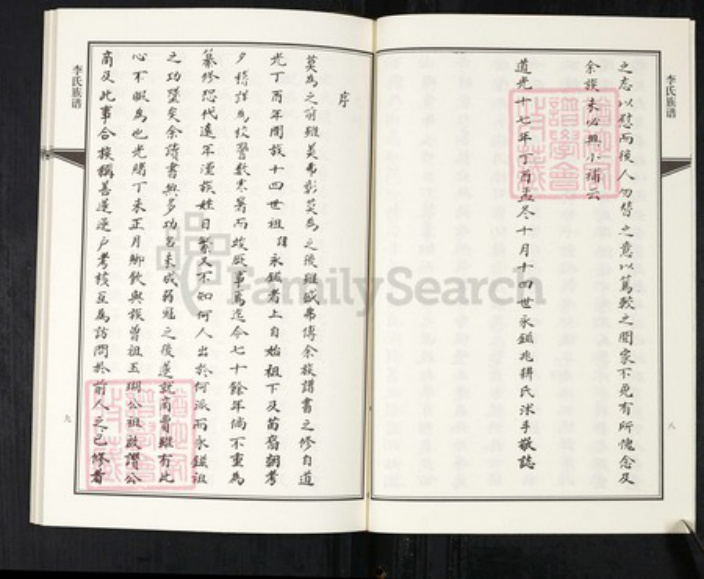 李氏族谱
之志以慰而後人勿替之意以篤敬之聞家不免有所愧念及
余族未必無小補云
道光十七年丁酉孟冬十月十四世永鎡兆耕氏沐手敬誌
八
李氏族谱
序
莫為之前雖美弗彰莫為之後雖盛弗傳余族譜書之修自道
光丁酉年間族十四世祖諱永鎡者上自始祖下及苗裔朝考
夕稽詳為校警數寒暑而竣厥事焉迄今七十餘年倘不重為
纂修恐代遠年湮族姓日繁又不知何人出於何派而永鎡祖
之功墜矣余讀書無多功名未成弱冠之後遂就商賈雖有此
心不暇為也光緒丁未正月鄉飲與族曾祖玉瑚公祖啟瓚公
商及此事合族稱善遂逐戶考核互為訪問於前人之已修者
九
FamilySearch